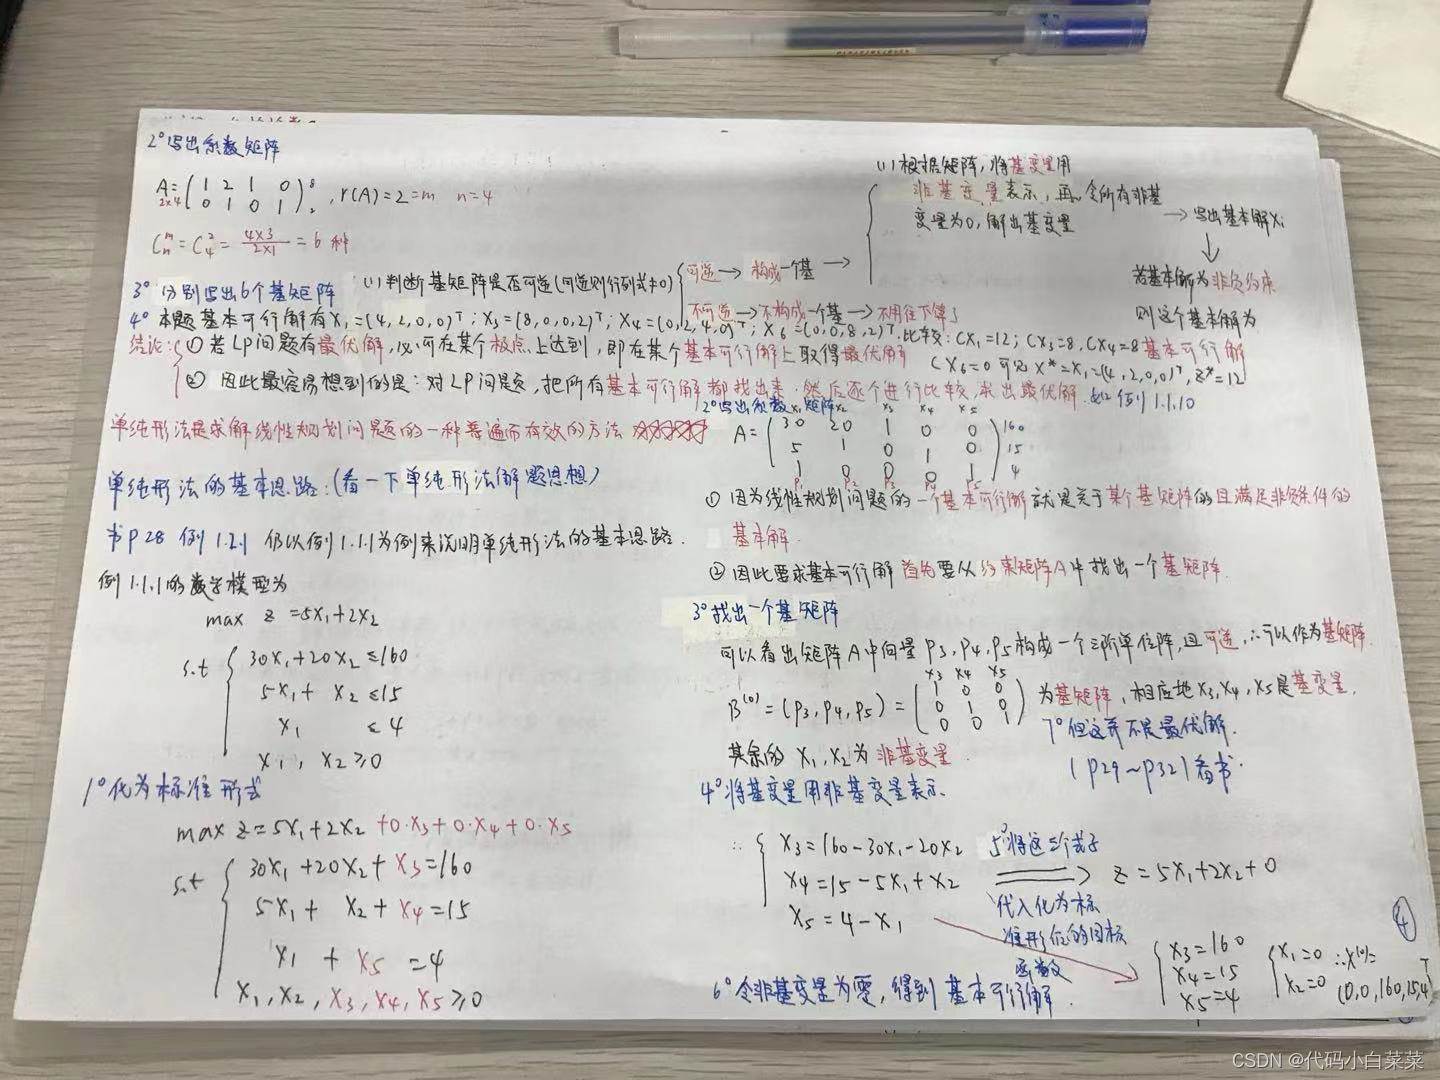 2° 写出系数矩阵
A= ( 1 2 1 0 ) 8
2×4 ( 0 1 0 1 ) 2 , r(A)=2=m n=4
Cnᵐ = C₄² = 4×3/2×1 = 6 种
3° 分别写出6个基矩阵 (1) 判断基矩阵是否可逆(可逆则行列式≠0) { 可逆 → 构成一个基 →
不可逆 → 不构成一个基 → 不用往下算
(1) 根据矩阵, 将基变量用
非基变量表示, 再令所有非基
变量为0, 解出基变量
→ 写出基本解Xi
↓
若基本解为非负约束
则这个基本解为
基本可行解
4° 本题基本可行解有X₁=(4,2,0,0)ᵀ; X₃=(8,0,0,2)ᵀ; X₄=(0,2,4,0)ᵀ; X₆=(0,0,8,2)ᵀ. 比较: CX₁=12; CX₃=8, CX₄=8
CX₆=0 可见 X*=X₁=(4,2,0,0)ᵀ, Z*=12
结论: ① 若LP问题有最优解, 必可在某个极点上达到, 即在某个基本可行解上取得最优解
② 因此最容易想到的是: 对LP问题, 把所有基本可行解都找出来, 然后逐个进行比较, 求出最优解. 如例1.1.10
单纯形法是求解线性规划问题的一种普遍而有效的方法
单纯形法的基本思路: (看一下单纯形法解题思想)
书P28 例1.2.1 仍以例1.1.1为例来说明单纯形法的基本思路.
例1.1.1的数学模型为
max z=5x₁+2x₂
s.t { 30x₁+20x₂≤160
5x₁+ x₂≤15
x₁ ≤4
x₁, x₂≥0
1° 化为标准形式
max z=5x₁+2x₂+0·x₃+0·x₄+0·x₅
s.t { 30x₁+20x₂+x₃=160
5x₁+ x₂+x₄=15
x₁ + x₅ =4
x₁,x₂,x₃,x₄,x₅≥0
2° 写出系数矩阵
x₁ x₂ x₃ x₄ x₅
A= ( 30 20 1 0 0 ) 160
( 5 1 0 1 0 ) 15
( 1 0 0 0 1 ) 4
P₁ P₂ P₃ P₄ P₅
① 因为线性规划问题的一个基本可行解就是关于某个基矩阵的且满足非负条件的
基本解.
② 因此要求基本可行解首先要从约束矩阵A中找出一个基矩阵.
3° 找出一个基矩阵
可以看出矩阵A中向量P₃,P₄,P₅构成一个三阶单位阵, 且可逆, ∴可以作为基矩阵.
x₃ x₄ x₅
B⁽⁰⁾=(P₃,P₄,P₅)= ( 1 0 0 )
( 0 1 0 )
( 0 0 1 )
为基矩阵, 相应地x₃,x₄,x₅是基变量,
其余的x₁,x₂为非基变量.
7° 但这并不是最优解.
(P29~P32)看书.
4° 将基变量用非基变量表示.
∴ { x₃=160-30x₁-20x₂
x₄=15-5x₁+x₂
x₅=4-x₁
5° 将这三个式子
代入化为标
准形后的目标
函数
z=5x₁+2x₂+0
6° 令非基变量为零, 得到基本可行解.
{ x₃=160
x₄=15
x₅=4
{ x₁=0
x₂=0
∴X⁽⁰⁾=
(0,0,160,15,4)ᵀ
④
CSDN @代码小白菜菜